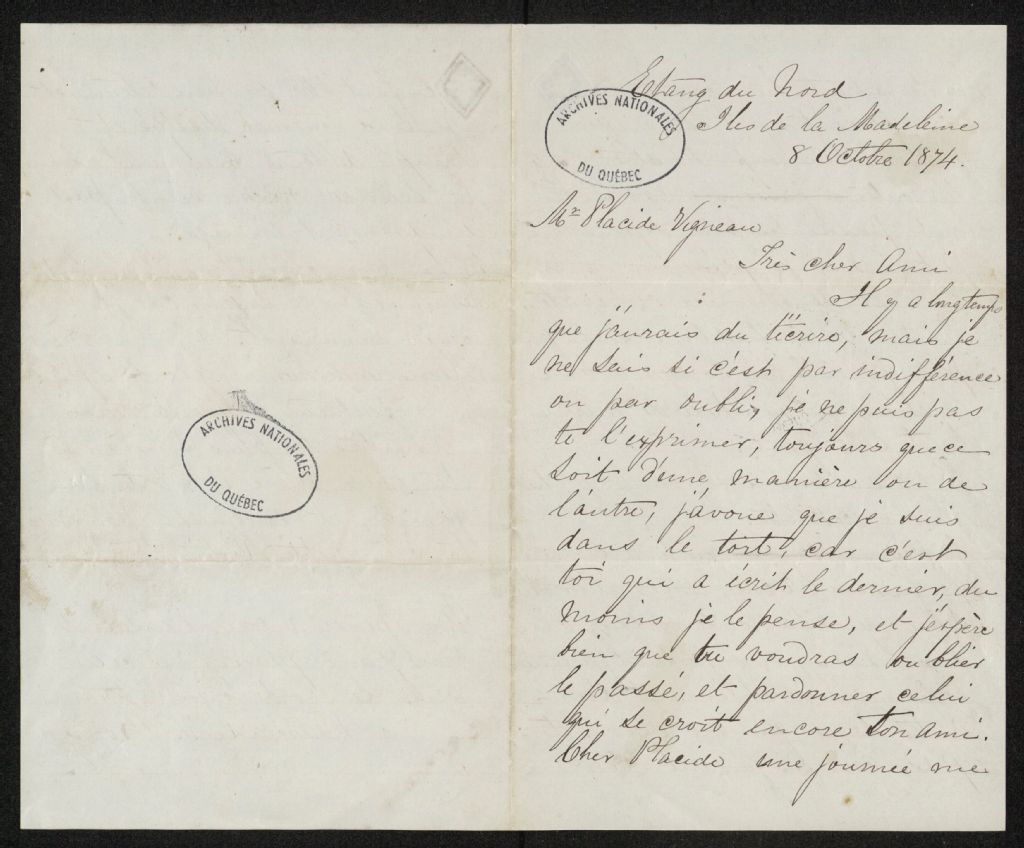 ARCHIVES NATIONALES
DU QUÉBEC
Etang du Nord
ARCHIVES NATIONALES
DU QUÉBEC
Iles de la Madeleine
8 Octobre 1874.
Mr Placide Vigneau
Très cher Ami
Il y a longtemps
que j'aurais du t'écrire, mais je
ne sais si c'est par indifférence
ou par oubli, je ne puis pas
te l'exprimer, toujours que ce
soit d'une manière ou de
l'autre, j'avoue que je suis
dans le tort, car c'est
toi qui a écrit le dernier, du
moins je le pense, et j'espère
bien que tu voudras oublier
le passé, et pardonner celui
qui se croit encore ton ami.
Cher Placide une journée me